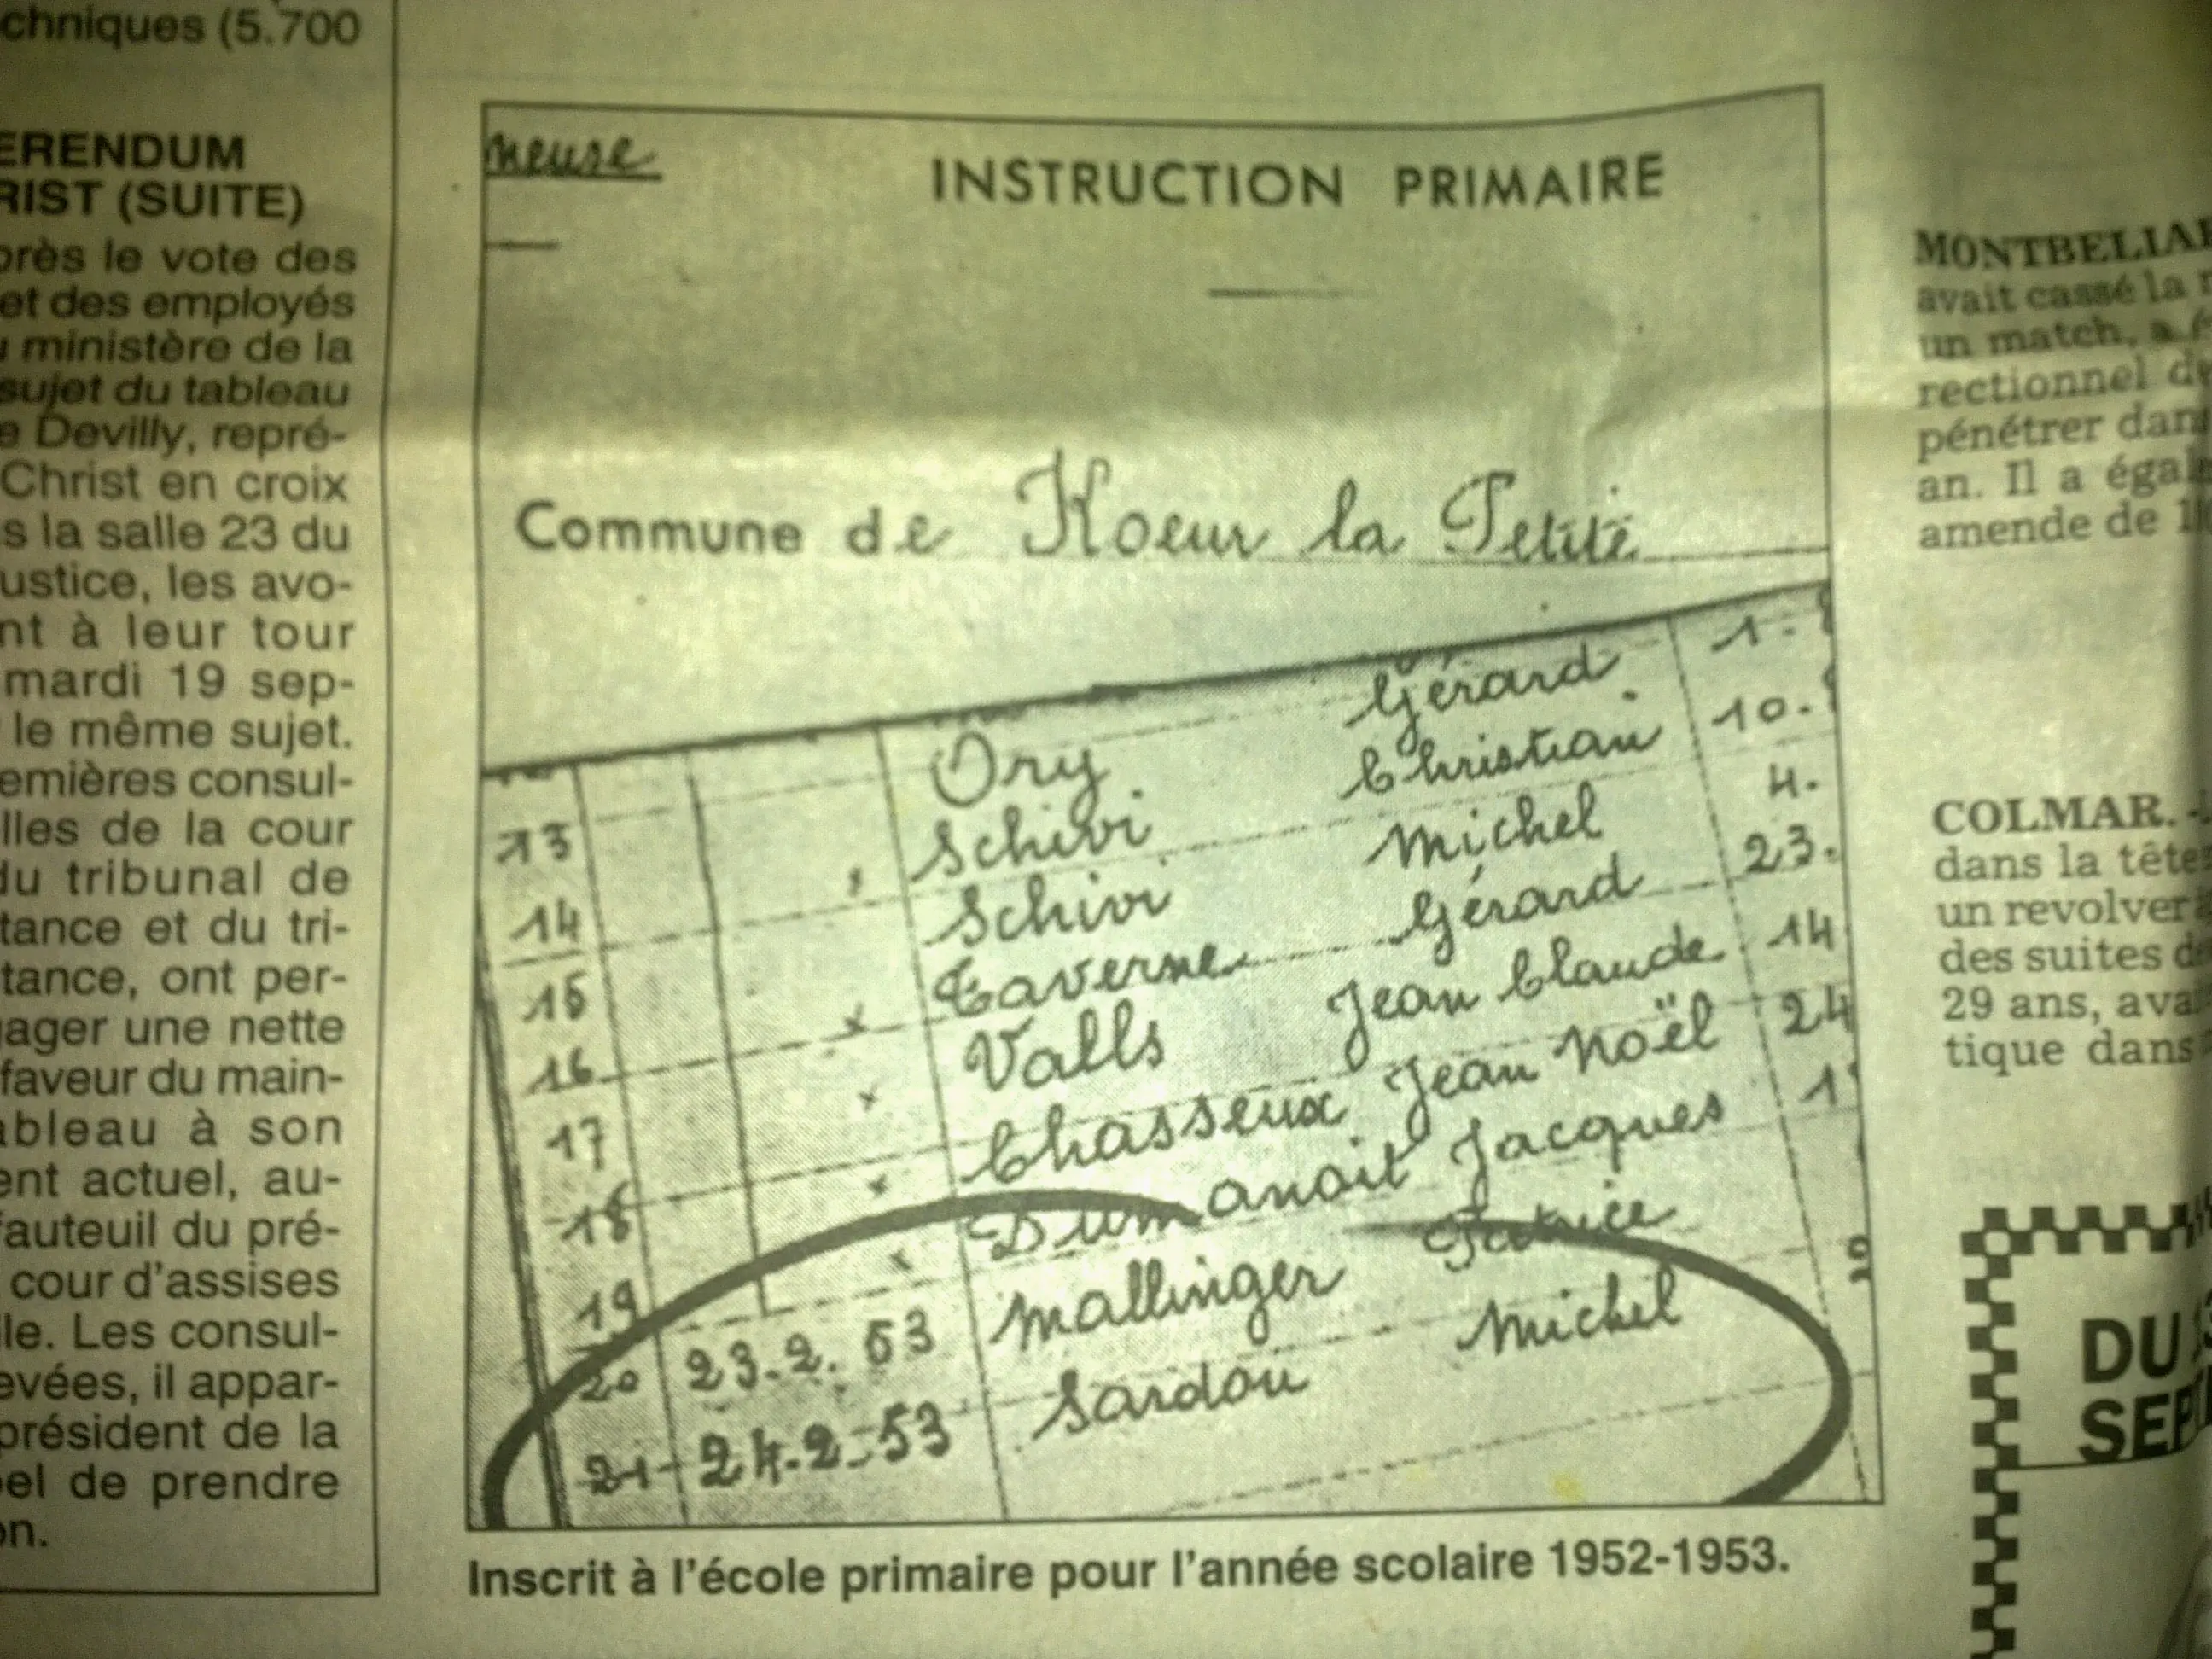 chniques (5.700
ERENDUM
RIST (SUITE)
près le vote des
et des employés
u ministère de la
sujet du tableau
e Devilly, repré-
Christ en croix
s la salle 23 du
ustice, les avo-
nt à leur tour
mardi 19 sep-
le même sujet.
emières consul-
lles de la cour
du tribunal de
tance et du tri-
tance, ont per-
ager une nette
faveur du main-
ableau à son
ent actuel, au-
fauteuil du pré-
cour d'assises
le. Les consul-
evées, il appar-
président de la
el de prendre
on.
Meuse
INSTRUCTION PRIMAIRE
Commune de Koeur la Petite
Gérard 1.
13 Ory Christian 10.
14 Schivi Michel 4.
15 Schivi Gérard 23.
16 Taverne Jean Claude 14
17 Valls Jean Noël 24
18 Chasseux Jacques 1
19 Dumanoit Patrice
20 23.2.53 Mallinger Michel
21 24.2.53 Sardou
Inscrit à l'école primaire pour l'année scolaire 1952-1953.
MONTBELIAR
avait cassé la
un match, a é
rectionnel de
pénétrer dan
an. Il a égal
amende de 1
COLMAR. -
dans la tête
un revolver
des suites d
29 ans, ava
tique dans
DU
SEPT